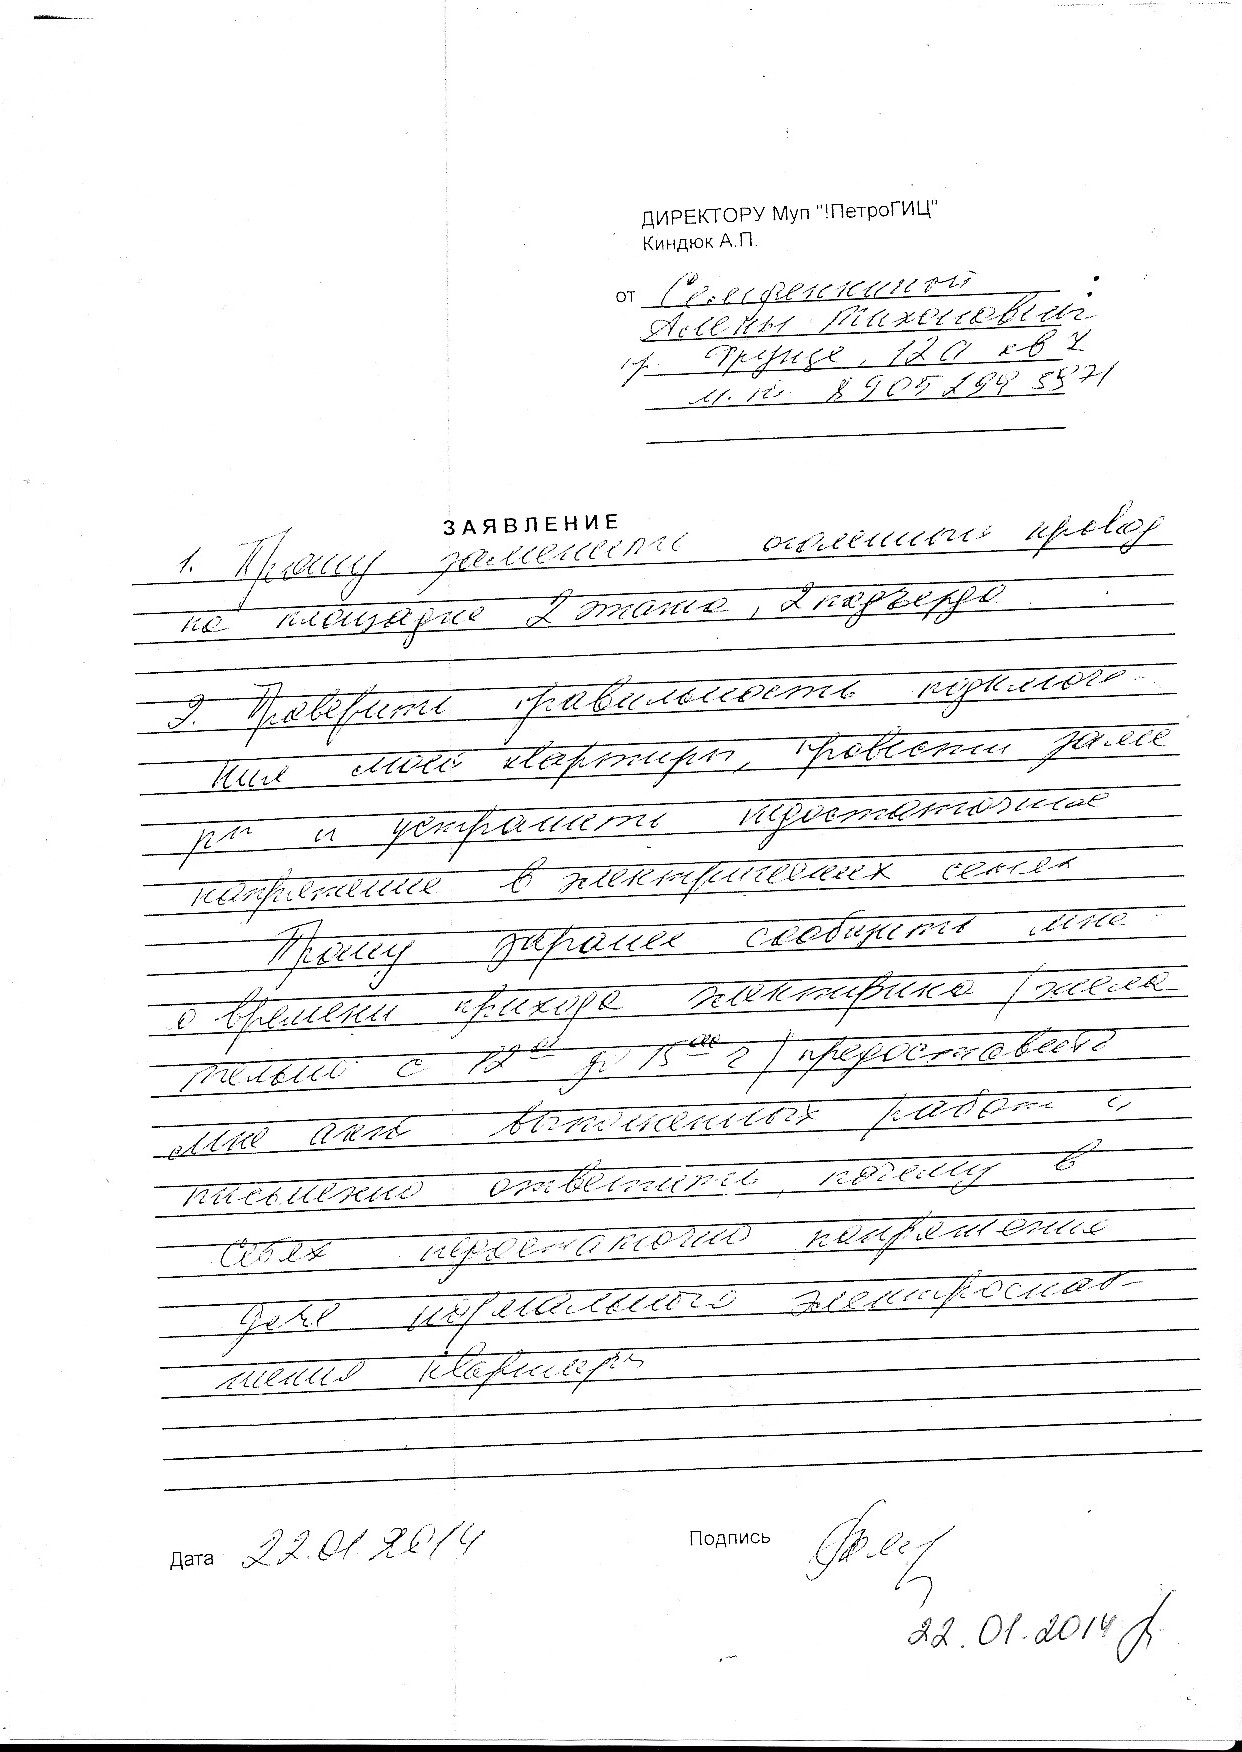 ДИРЕКТОРУ Муп "!ПетроГИЦ"
Киндюк А.П.
от
Алены Тихоновны
пр. Фрунзе, 12а кв
м. т. 8905 299
ЗАЯВЛЕНИЕ
1. Прошу заменить оголенный провод
на площадке 2 этажа, 2 подъезда
2. Проверить правильность подключе-
ния моей квартиры, провести заме
ры и устранить недостаточное
напряжение в электрических сетях
Прошу заранее сообщить мне
о времени прихода электрика (жела
тельно с 12 00 до 15 00 ч) предоставить
мне акт выполненных работ и
письменно ответить, почему в
сетях недостаточно напряжения
для нормального электроснаб-
жения квартиры
Дата 22.01.2014
Подпись
22.01.2014